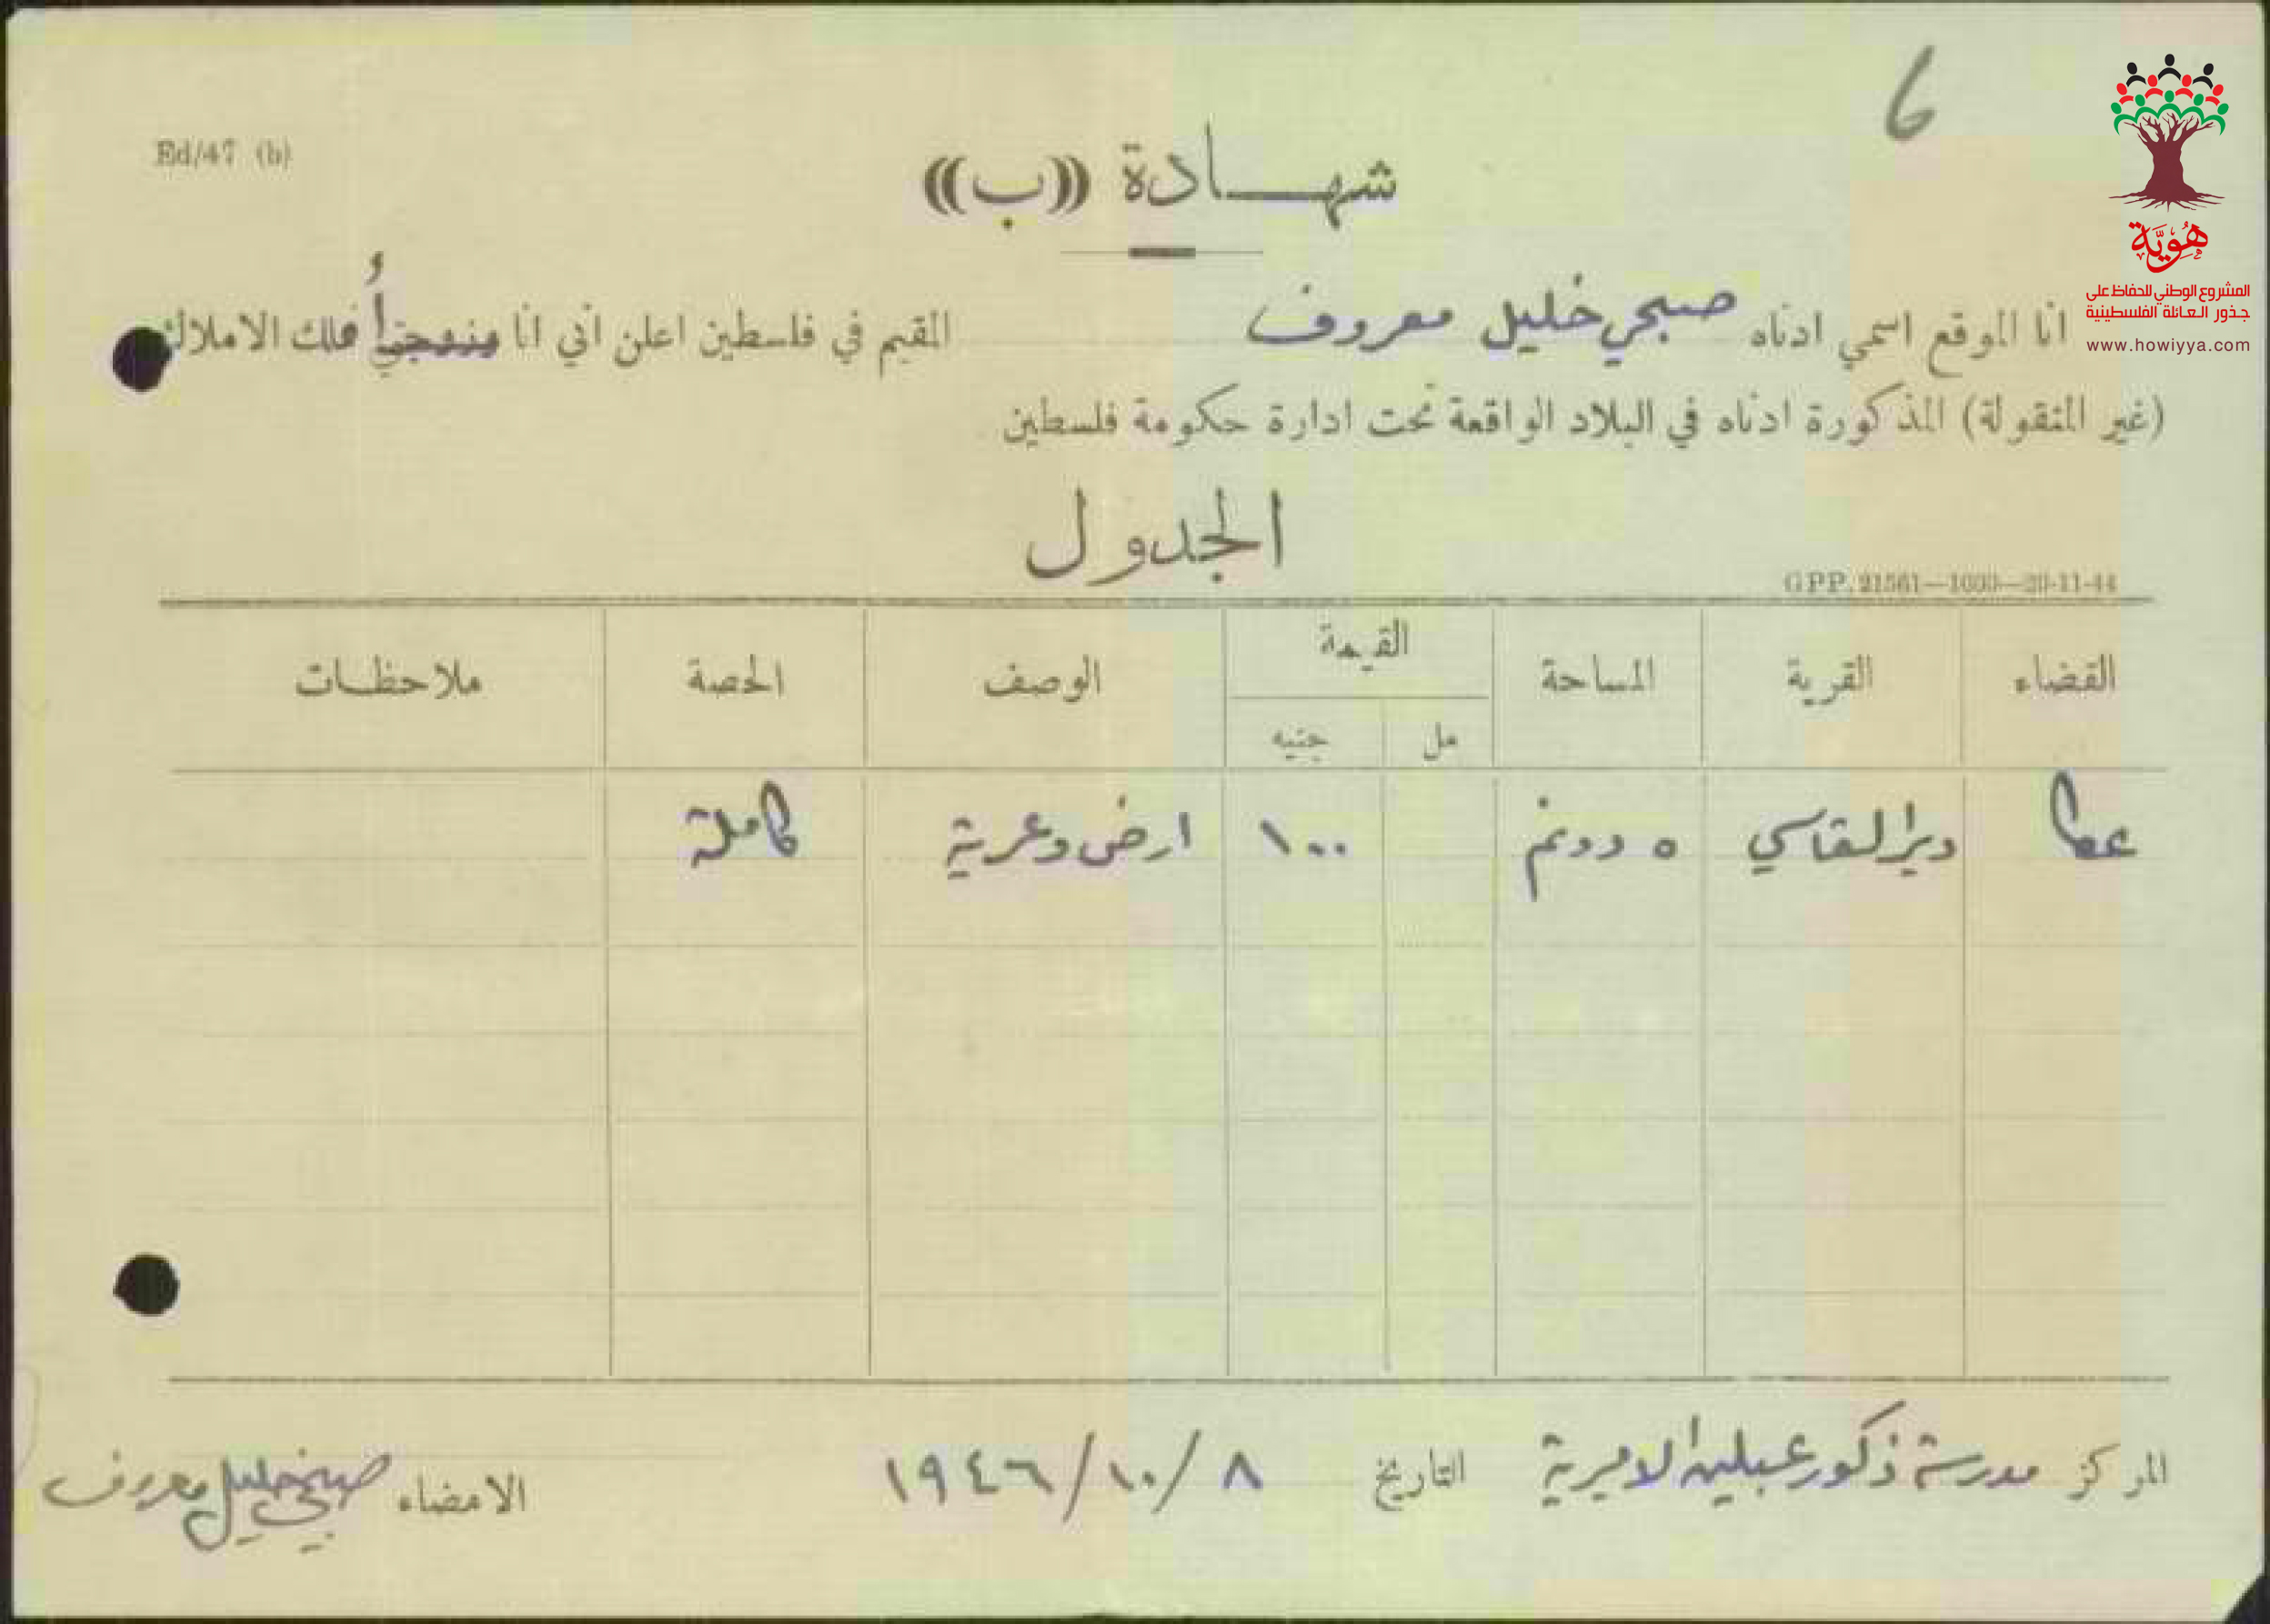 6
Ed/47 (b)
شهادة ((ب))
هُوِيَّة
المشروع الوطني للحفاظ على
جذور العائلة الفلسطينية
www.howiyya.com
انا الموقع اسمي ادناه صبحي خليل معروف المقيم في فلسطين اعلن اني انا وزوجتي أملك الاملاك
(غير المنقولة) المذكورة ادناه في البلاد الواقعة تحت ادارة حكومة فلسطين
الجدول
GPP. 21561—1000—20-11-44
القضاء القرية المساحة القيمة الوصف الحصة ملاحظات
مل جنيه
عكا ديرالقاسي ٥ دونم ١٠٠ ارض وعرية كاملة
المركز مدرسة ذكور عبلين الاميرية التاريخ ٨/١٠/١٩٤٦ الامضاء صبحي خليل معروف